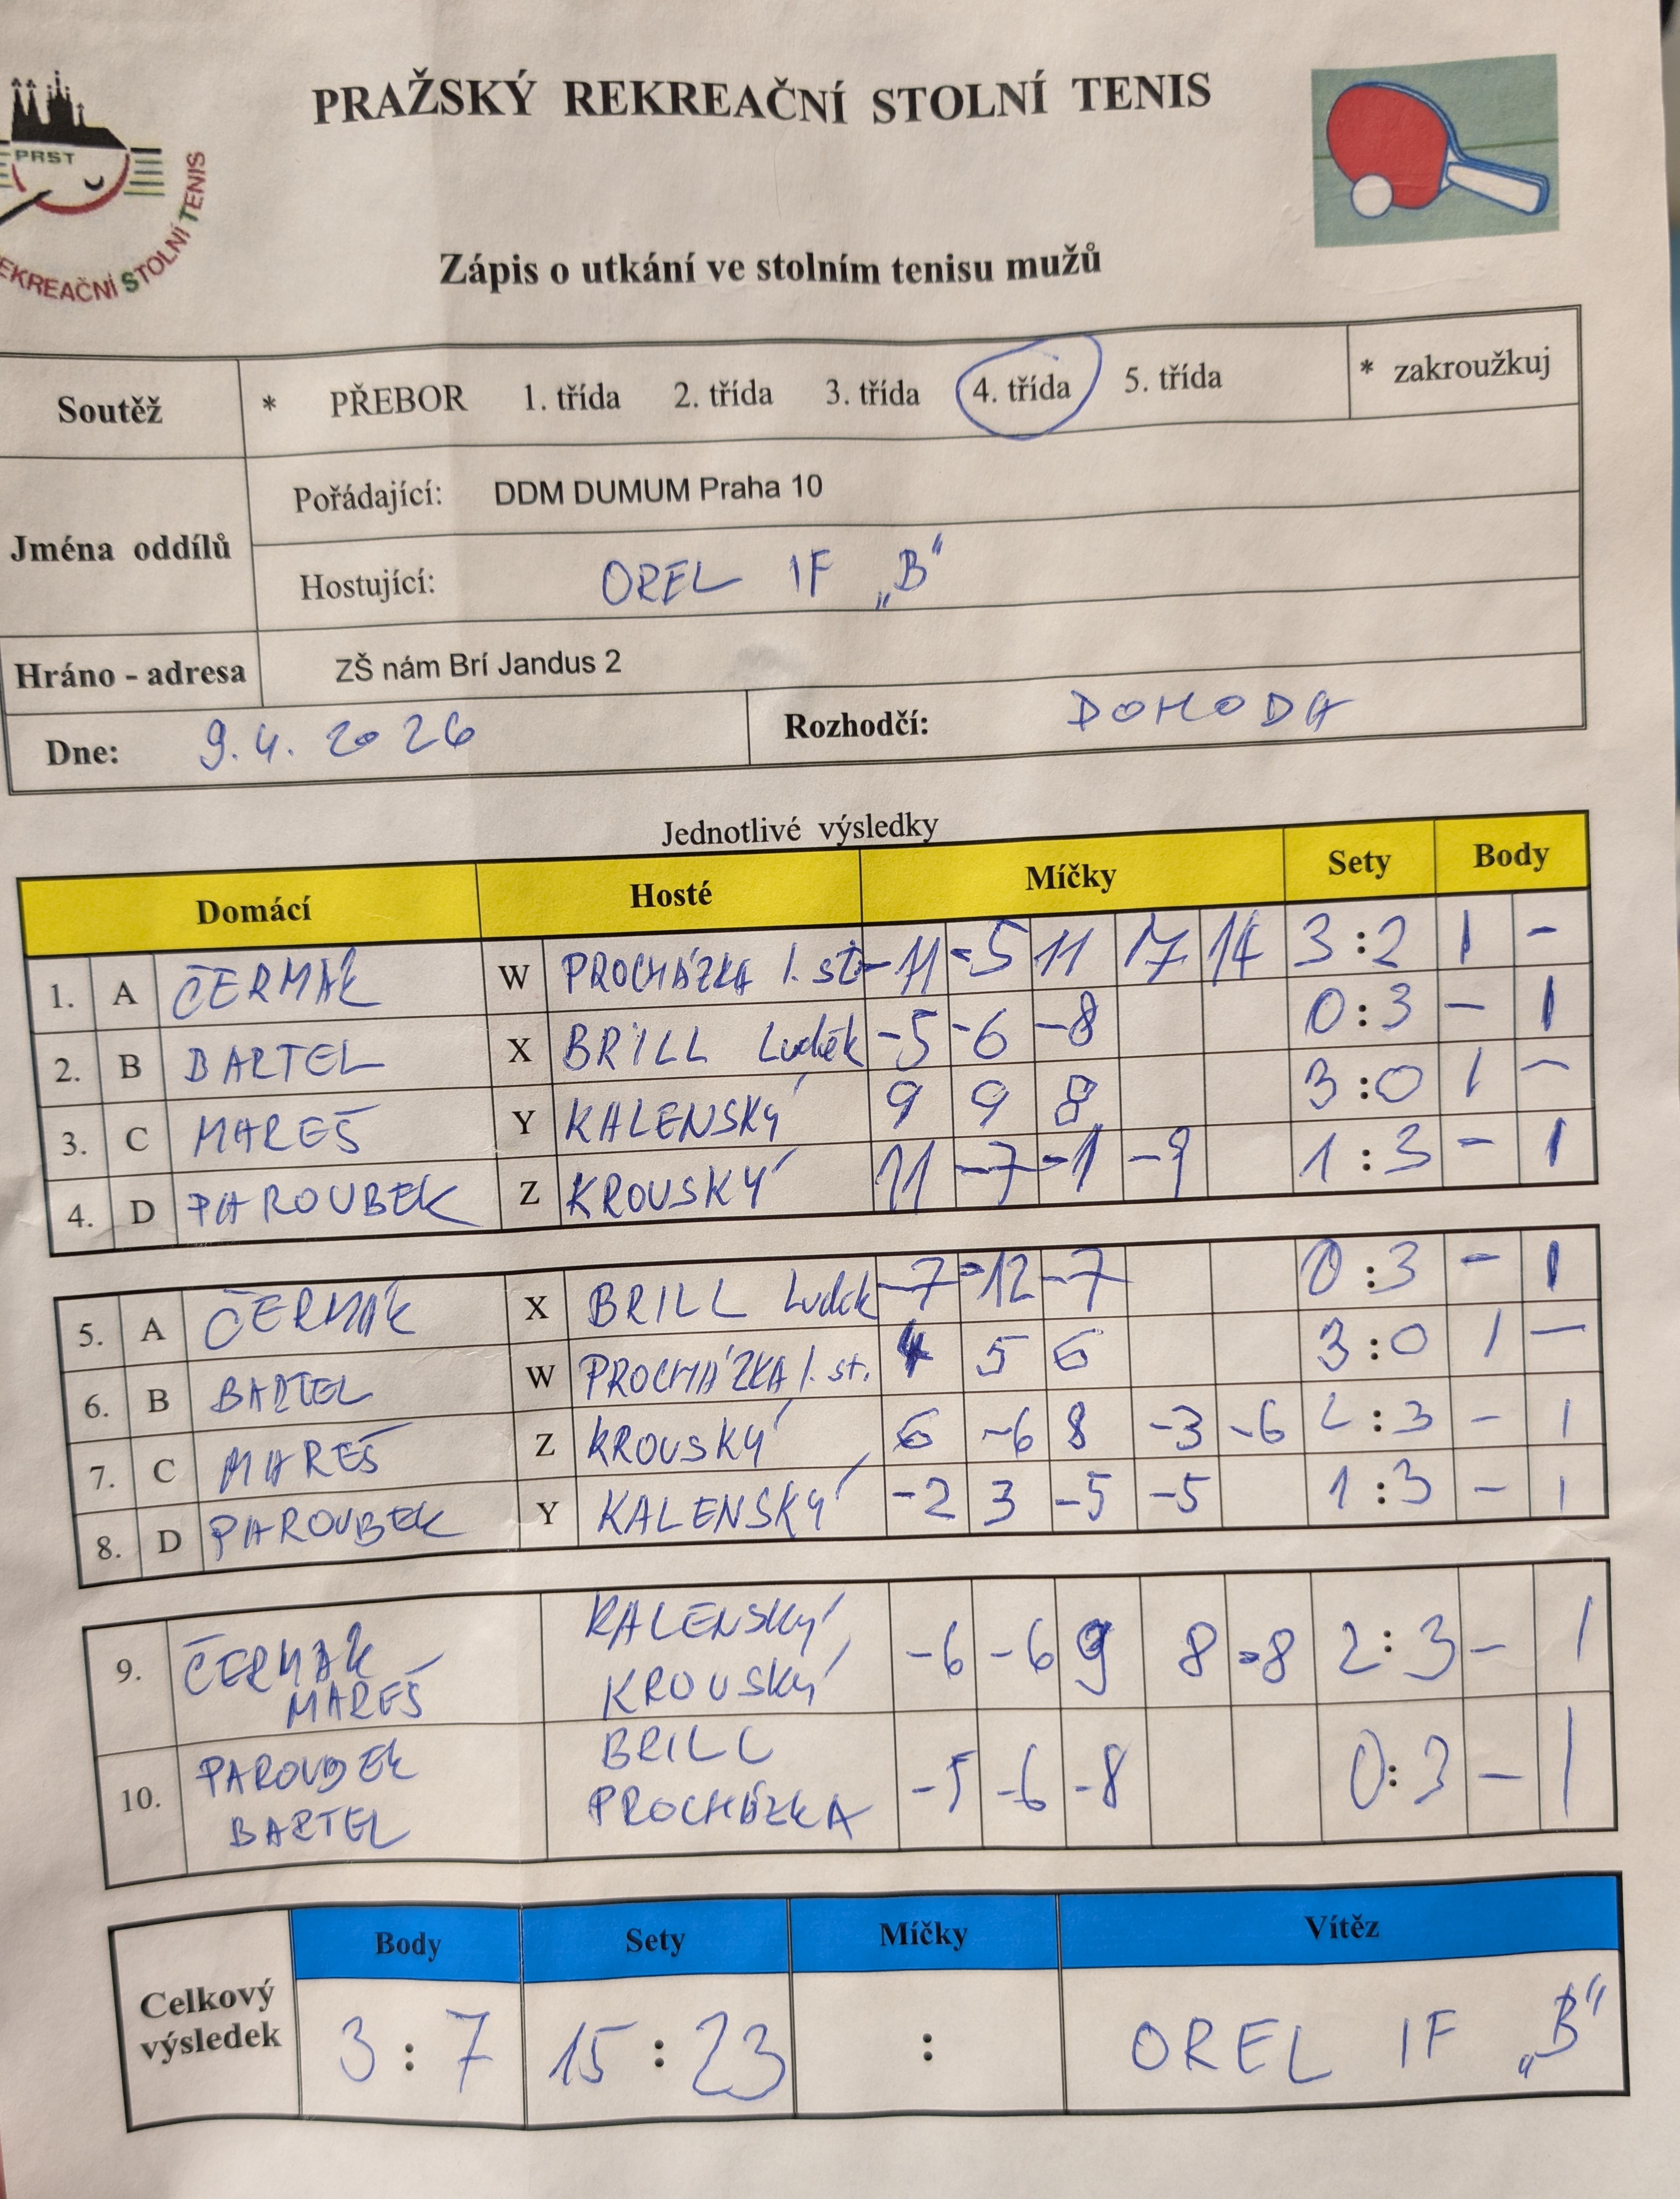 PRAŽSKÝ REKREAČNÍ STOLNÍ TENIS
PRST
EKREAČNÍ STOLNÍ TENIS
Zápis o utkání ve stolním tenisu mužů
Soutěž * PŘEBOR 1. třída 2. třída 3. třída 4. třída 5. třída * zakroužkuj
Jména oddílů
Pořádající: DDM DUMUM Praha 10
Hostující: OREL IF „B“
Hráno - adresa ZŠ nám Brí Jandus 2
Dne: 9.4. 2026 Rozhodčí: DOHODA
Jednotlivé výsledky
Domácí Hosté Míčky Sety Body
1. A ČERMÁK W PROCHÁZKA I. st. -11 -5 11 17 14 3:2 1 -
2. B BARTEL X BRILL Luděk -5 -6 -8 0:3 - 1
3. C MAREŠ Y KALENSKÝ 9 9 8 3:0 1 -
4. D PAROUBEK Z KROUSKÝ 11 -7 -1 -9 1:3 - 1
5. A ČERMÁK X BRILL Luděk -7 -12 -7 0:3 - 1
6. B BARTEL W PROCHÁZKA I. st. 4 5 6 3:0 1 -
7. C MAREŠ Z KROUSKÝ 6 -6 8 -3 -6 2:3 - 1
8. D PAROUBEK Y KALENSKÝ -2 3 -5 -5 1:3 - 1
9. ČERMÁK MAREŠ KALENSKÝ KROUSKÝ -6 -6 9 8 -8 2:3 - 1
10. PAROUBEK BARTEL BRILL PROCHÁZKA -5 -6 -8 0:3 - 1
Celkový výsledek
Body Sety Míčky Vítěz
3:7 15:23 : OREL IF „B“